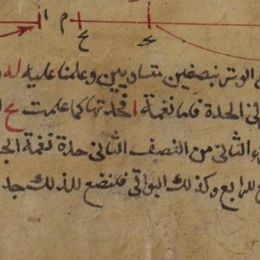 ا م ح
ى الوتر بنصفين متساويين وعلمنا عليه
الى الحدة فاما نغمة ا فحدتها كما علمت ح
و الثانى من النصف الثانى حدة نغمة الجـ
ع للرابع وكذلك البواقى فلنضع لذلك جد